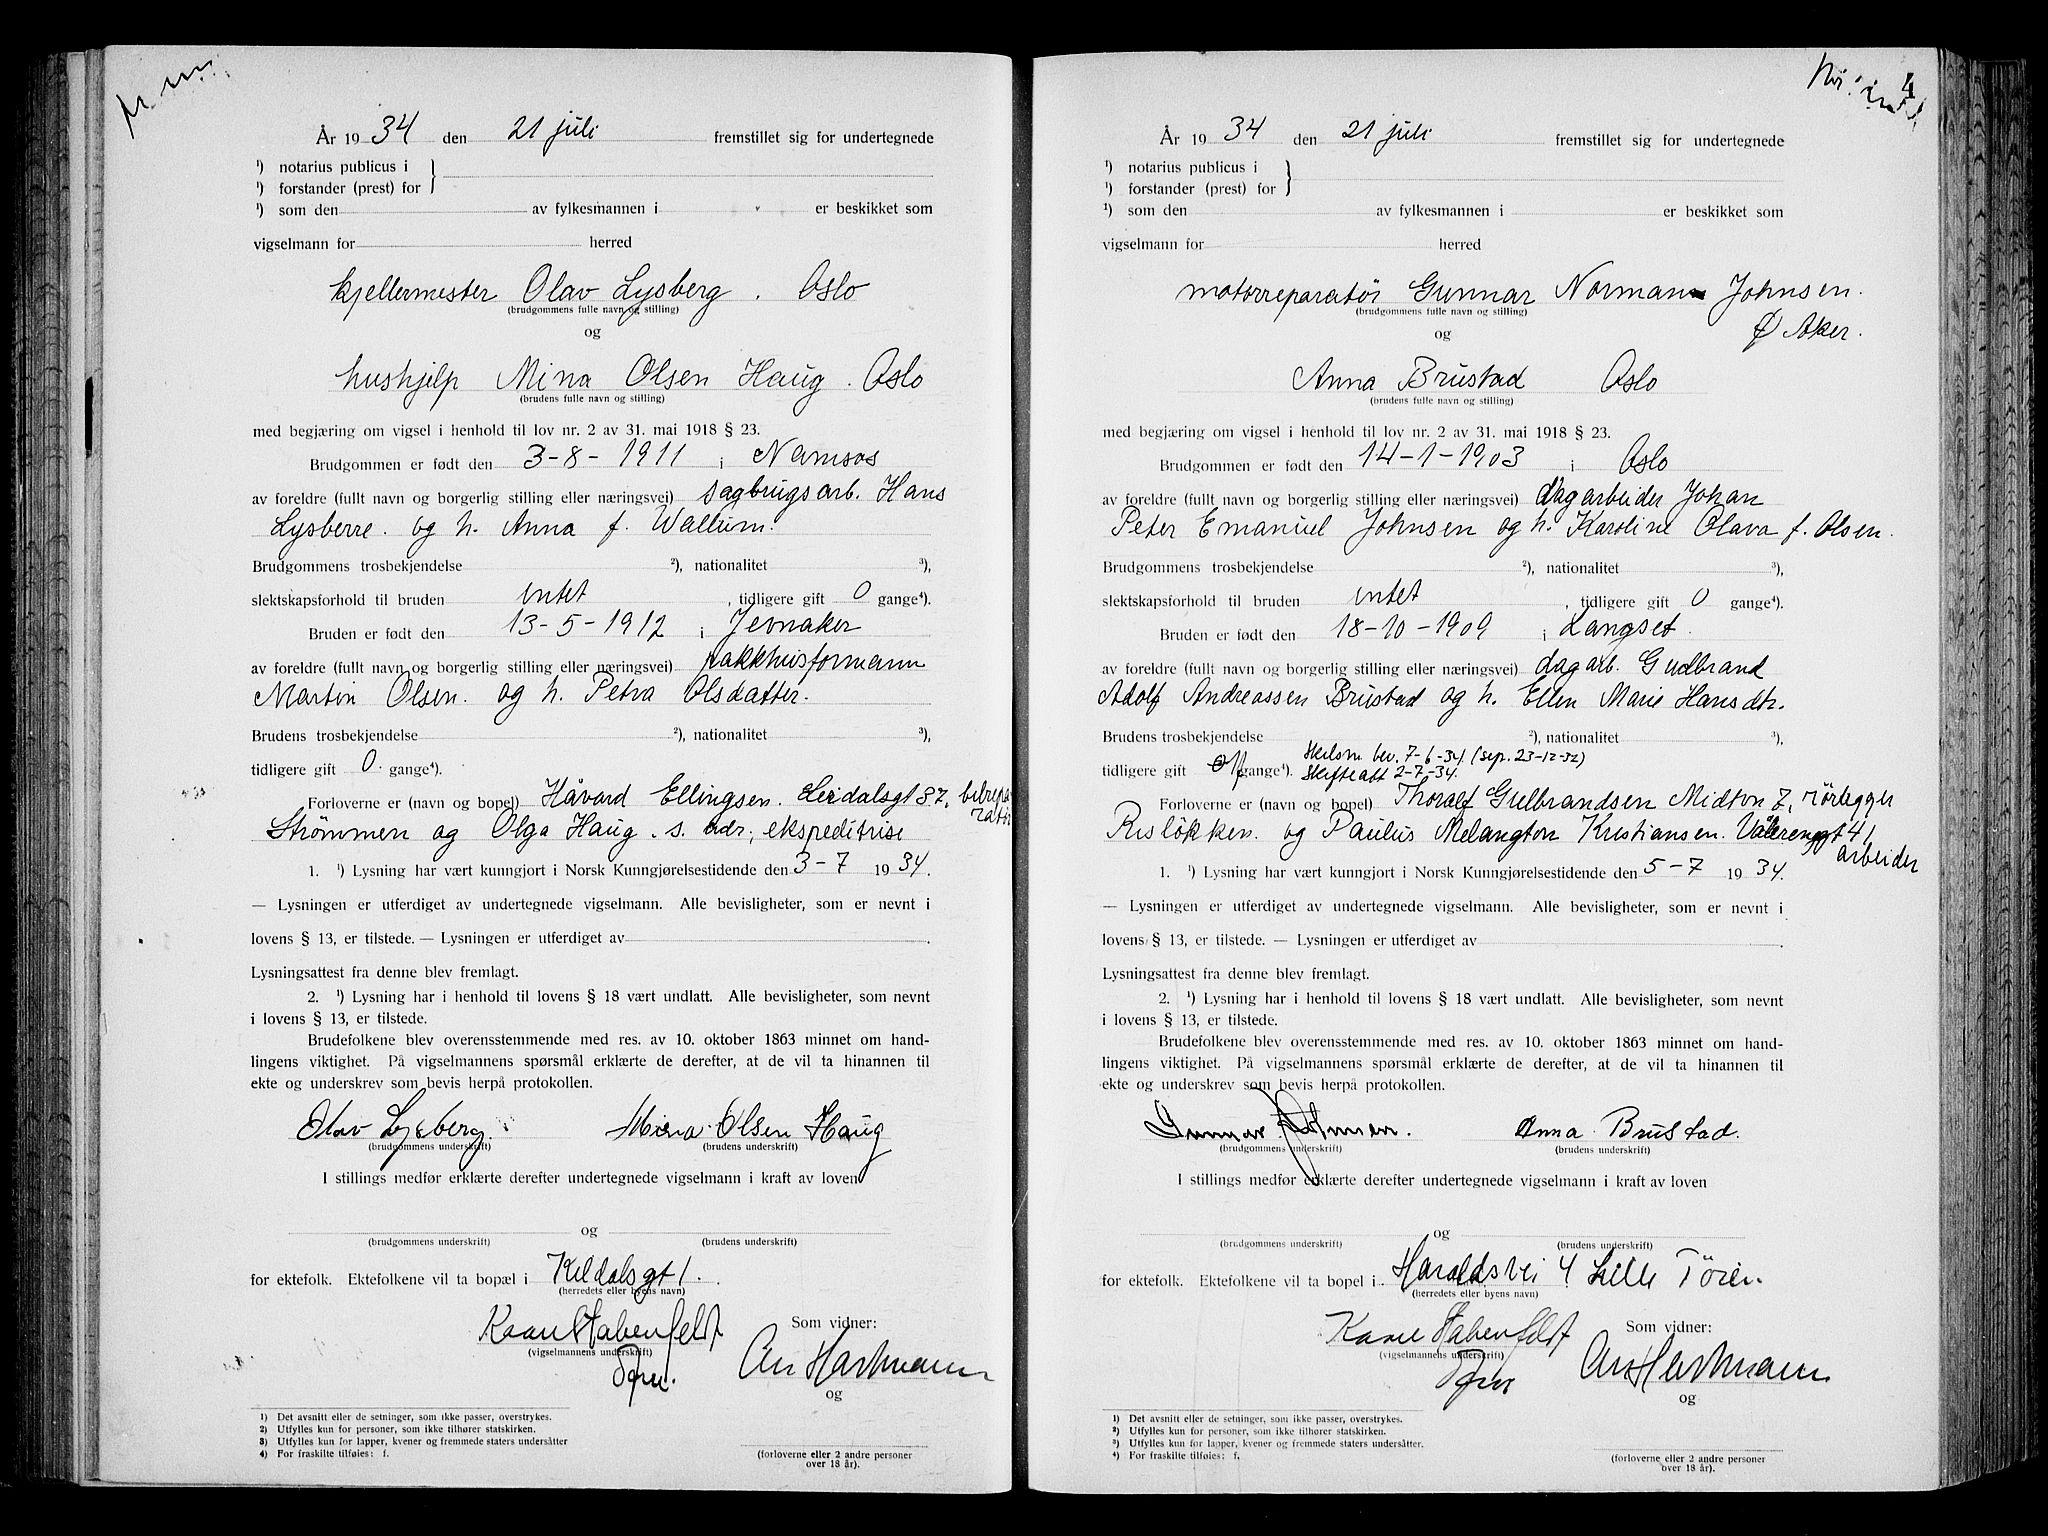 År 1934 den 21 juli fremstillet sig for undertegnede
¹) notarius publicus i
¹) forstander (prest) for
¹) som den av fylkesmannen i er beskikket som
vigselmann for herred
kjellermester Olav Lysberg. Oslo
(brudgommens fulle navn og stilling)
og
hushjelp Mina Olsen Haug. Oslo
(brudens fulle navn og stilling)
med begjæring om vigsel i henhold til lov nr. 2 av 31. mai 1918 § 23.
Brudgommen er født den 3-8-1911 i Namsos
av foreldre (fullt navn og borgerlig stilling eller næringsvei) sagbrugsarb. Hans
Lysberre. og h. Anna f. Wallum.
Brudgommens trosbekjendelse ²), nationalitet ³),
slektskapsforhold til bruden intet, tidligere gift 0 gange⁴).
Bruden er født den 13-5-1912 i Jevnaker
av foreldre (fullt navn og borgerlig stilling eller næringsvei) pakkhusformann
Martin Olsen. og h. Petra Olsdatter.
Brudens trosbekjendelse ²), nationalitet ³),
tidligere gift 0. gange⁴).
Forloverne er (navn og bopel) Håvard Ellingsen. Leirdalsgt 87, bilrepa-
ratør
Strømmen og Olga Haug. s. adr., ekspeditrise
1. ¹) Lysning har vært kunngjort i Norsk Kunngjørelsestidende den 3-7 1934.
— Lysningen er utferdiget av undertegnede vigselmann. Alle bevisligheter, som er nevnt i
lovens § 13, er tilstede. — Lysningen er utferdiget av .
Lysningsattest fra denne blev fremlagt.
2. ¹) Lysning har i henhold til lovens § 18 vært undlatt. Alle bevisligheter, som nevnt
i lovens § 13, er tilstede.
Brudefolkene blev overensstemmende med res. av 10. oktober 1863 minnet om hand-
lingens viktighet. På vigselmannens spørsmål erklærte de derefter, at de vil ta hinannen til
ekte og underskrev som bevis herpå protokollen.
Olav Lysberg. Mina Olsen Haug
(brudgommens underskrift) (brudens underskrift)
I stillings medfør erklærte derefter undertegnede vigselmann i kraft av loven
og
(brudgommens underskrift) (brudens underskrift)
for ektefolk. Ektefolkene vil ta bopæl i Keldalsgt 1.
(herredets eller byens navn)
Habenfeldt Som vidner:
(vigselmannens underskrift)
Hartmann
og
1) Det avsnitt eller de setninger, som ikke passer, overstrykes.
2) Utfylles kun for personer, som ikke tilhører statskirken.
3) Utfylles kun for lapper, kvener og fremmede staters undersåtter
4) For fraskilte tilføies: f.
(forloverne eller 2 andre personer
over 18 år).
4
År 1934 den 21 juli fremstillet sig for undertegnede
¹) notarius publicus i
¹) forstander (prest) for
¹) som den av fylkesmannen i er beskikket som
vigselmann for herred
motorreparatør Gunnar Norman Johnsen.
(brudgommens fulle navn og stilling)
og Ø Aker.
Anna Brustad Oslo
(brudens fulle navn og stilling)
med begjæring om vigsel i henhold til lov nr. 2 av 31. mai 1918 § 23.
Brudgommen er født den 14-1-1903 i Oslo
av foreldre (fullt navn og borgerlig stilling eller næringsvei) dagarbeider Johan
Peter Emanuel Johnsen og h. Karoline Olava f. Olsen.
Brudgommens trosbekjendelse ²), nationalitet ³),
slektskapsforhold til bruden intet, tidligere gift 0 gange⁴).
Bruden er født den 18-10-1909 i Langset.
av foreldre (fullt navn og borgerlig stilling eller næringsvei) dagarb. Gudbrand
Adolf Andreassen Brustad og h. Ellen Marie Hansdtr.
Brudens trosbekjendelse ²), nationalitet ³),
Skilsm bev. 7-6-34 (sep. 23-12-32)
tidligere gift 1f gange⁴). Skifteatt 2-7-34.
Forloverne er (navn og bopel) Thoralf Gulbrandsen Midton 7, rørlegger
Risløkken. og Paulus Melangton Kristiansen. Vålerenggt 41
arbeider
1. ¹) Lysning har vært kunngjort i Norsk Kunngjørelsestidende den 5-7 1934.
— Lysningen er utferdiget av undertegnede vigselmann. Alle bevisligheter, som er nevnt i
lovens § 13, er tilstede. — Lysningen er utferdiget av .
Lysningsattest fra denne blev fremlagt.
2. ¹) Lysning har i henhold til lovens § 18 vært undlatt. Alle bevisligheter, som nevnt
i lovens § 13, er tilstede.
Brudefolkene blev overensstemmende med res. av 10. oktober 1863 minnet om hand-
lingens viktighet. På vigselmannens spørsmål erklærte de derefter, at de vil ta hinannen til
ekte og underskrev som bevis herpå protokollen.
Gunnar Johnsen. Anna Brustad.
(brudgommens underskrift) (brudens underskrift)
I stillings medfør erklærte derefter undertegnede vigselmann i kraft av loven
og
(brudgommens underskrift) (brudens underskrift)
for ektefolk. Ektefolkene vil ta bopel i Haraldsvei 4 Lille Tøien
(herredets eller byens navn)
Habenfeldt Som vidner:
(vigselmannens underskrift)
Hartmann
og
¹) Det avsnitt eller de setninger, som ikke passer, overstrykes.
²) Utfylles kun for personer, som ikke tilhører statskirken.
³) Utfylles kun for lapper, kvener og fremmede staters undersåtter.
⁴) For fraskilte tilføies: f.
(forloverne eller 2 andre personer
over 18 år).